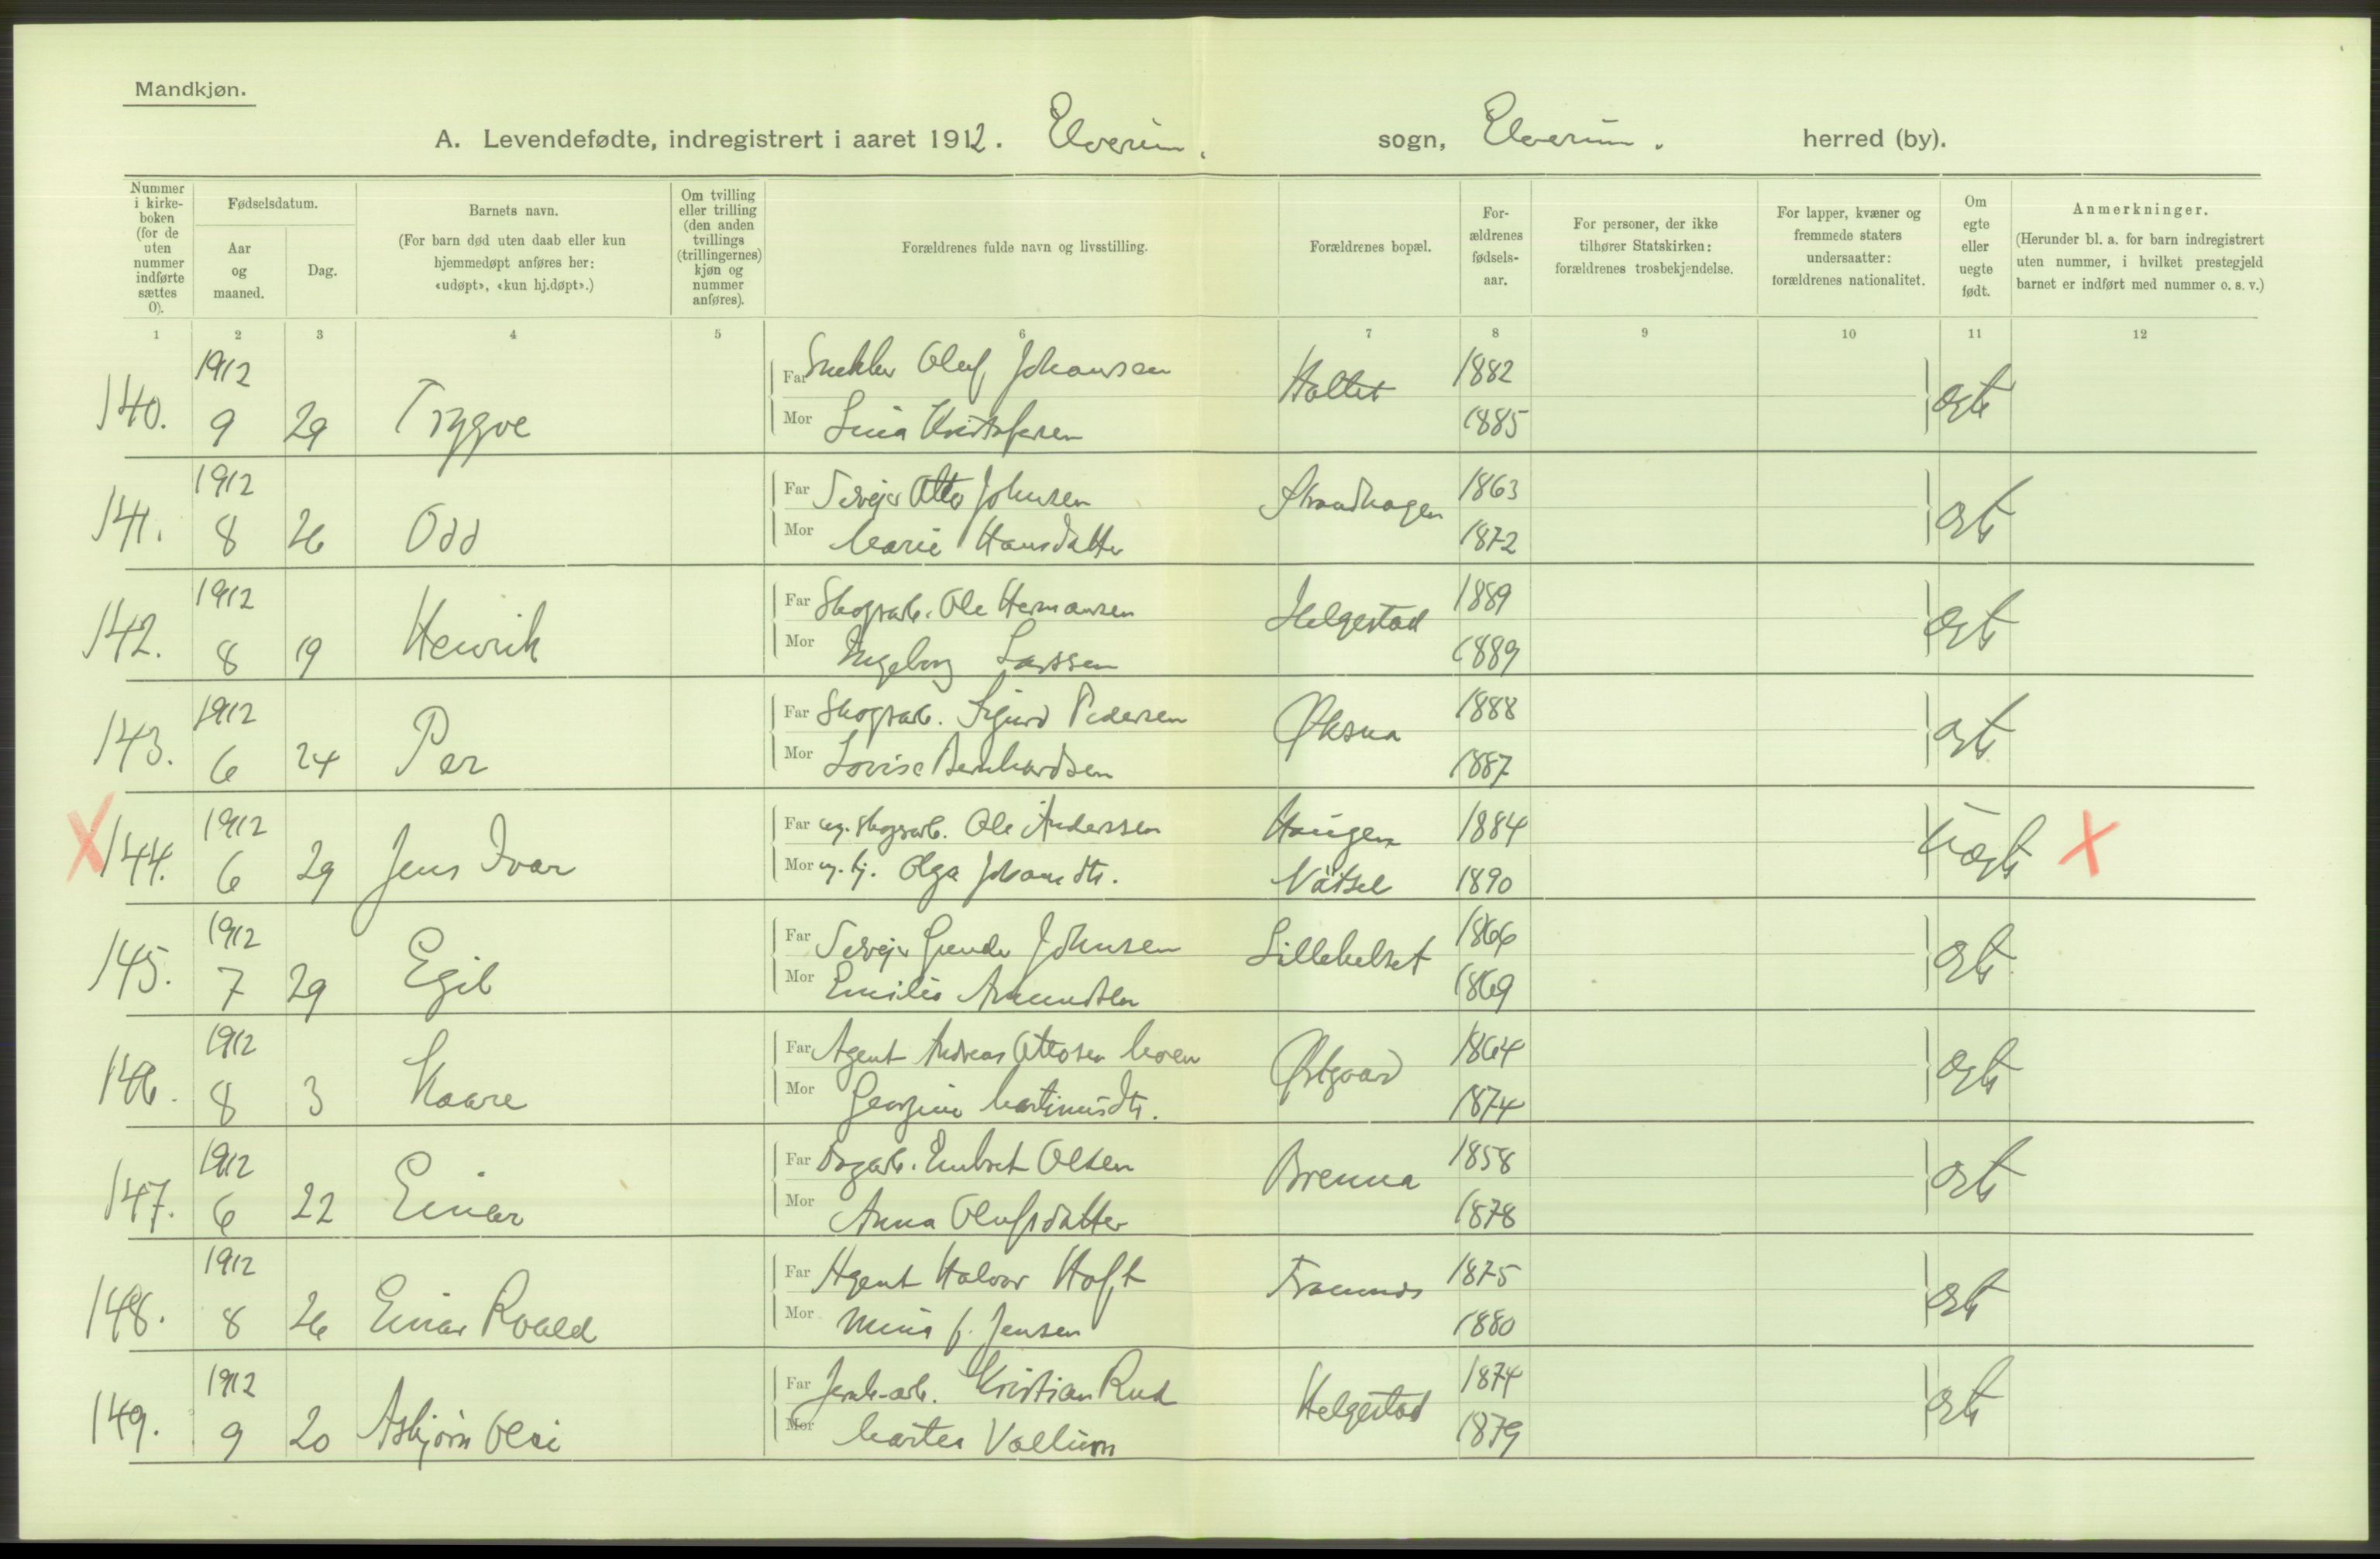 Mandkjøn.
A. Levendefødte, indregistrert i aaret 1912. Elverum. sogn, Elverum. herred (by).
Nummer i kirke-boken (for de uten nummer indførte sættes 0).
Fødselsdatum.
Aar og maaned.
Dag.
Barnets navn.
(For barn død uten daab eller kun hjemmedøpt anføres her: «udøpt», «kun hj.døpt».)
Om tvilling eller trilling (den anden tvillings (trillingernes) kjøn og nummer anføres).
Forældrenes fulde navn og livsstilling.
Forældrenes bopæl.
For-ældrenes fødsels-aar.
For personer, der ikke tilhører Statskirken: forældrenes trosbekjendelse.
For lapper, kvæner og fremmede staters undersaatter: forældrenes nationalitet.
Om egte eller uegte født.
Anmerkninger.
(Herunder bl. a. for barn indregistrert uten nummer, i hvilket prestegjeld barnet er indført med nummer o. s. v.)
1 2 3 4 5 6 7 8 9 10 11 12
1912 Far Snekker Oluf Johansen 1882
140. 9 29 Trygve Holtet ægte
Mor Lina Kristofersen 1885
1912 Far Otto Johnsen 1863
141. 8 26 Odd Strandhagen ægte
Mor Marie Hansdatter 1872
1912 Far Skogsarb. Ole Hermansen 1889
142. 8 19 Henrik Helgestad ægte
Mor Ingeborg Larssen 1889
1912 Far Skogsarb. Sigurd Pedersen 1888
143. 6 24 Per Øksna ægte
Mor Lovise Bernhardsen 1887
1912 Far ug. skogsarb. Ole Anderssen Haugen 1884
X 144. 6 29 Jens Ivar uægte X
Mor ug. tj. Olga Johansdtr. 1890
1912 Far Johnsen 1866
145. 7 29 Egil ægte
Mor Emilie Amundsen 1869
1912 Far Agent Andreas Ottosen Moen 1864
146. 8 3 Kaare Østgaard ægte
Mor Georgine Martinusdtr. 1874
1912 Far Dagarb. Embret Olsen 1858
147. 6 22 Einar Brenna ægte
Mor Anna Olufsdatter 1878
1912 Far Agent Halvor Hoft 1875
148. 8 26 Einar Roald ægte
Mor Mina f. Jensen 1880
1912 Far Jernb.-arb. Kristian Rud 1874
149. 9 20 Asbjørn Helgestad ægte
Mor Martea Vollum 1879